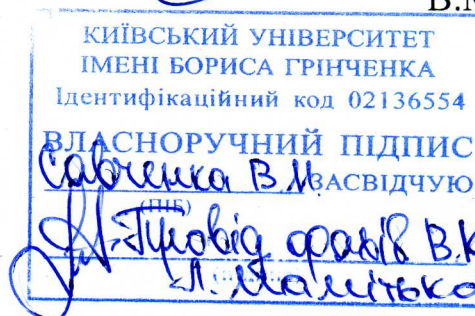 В.М
КИЇВСЬКИЙ УНІВЕРСИТЕТ
ІМЕНІ БОРИСА ГРІНЧЕНКА
Ідентифікаційний код 02136554
ВЛАСНОРУЧНИЙ ПІДПИС
Савченка В.М. ЗАСВІДЧУЮ
(ПІБ)
Провід фахів В.К